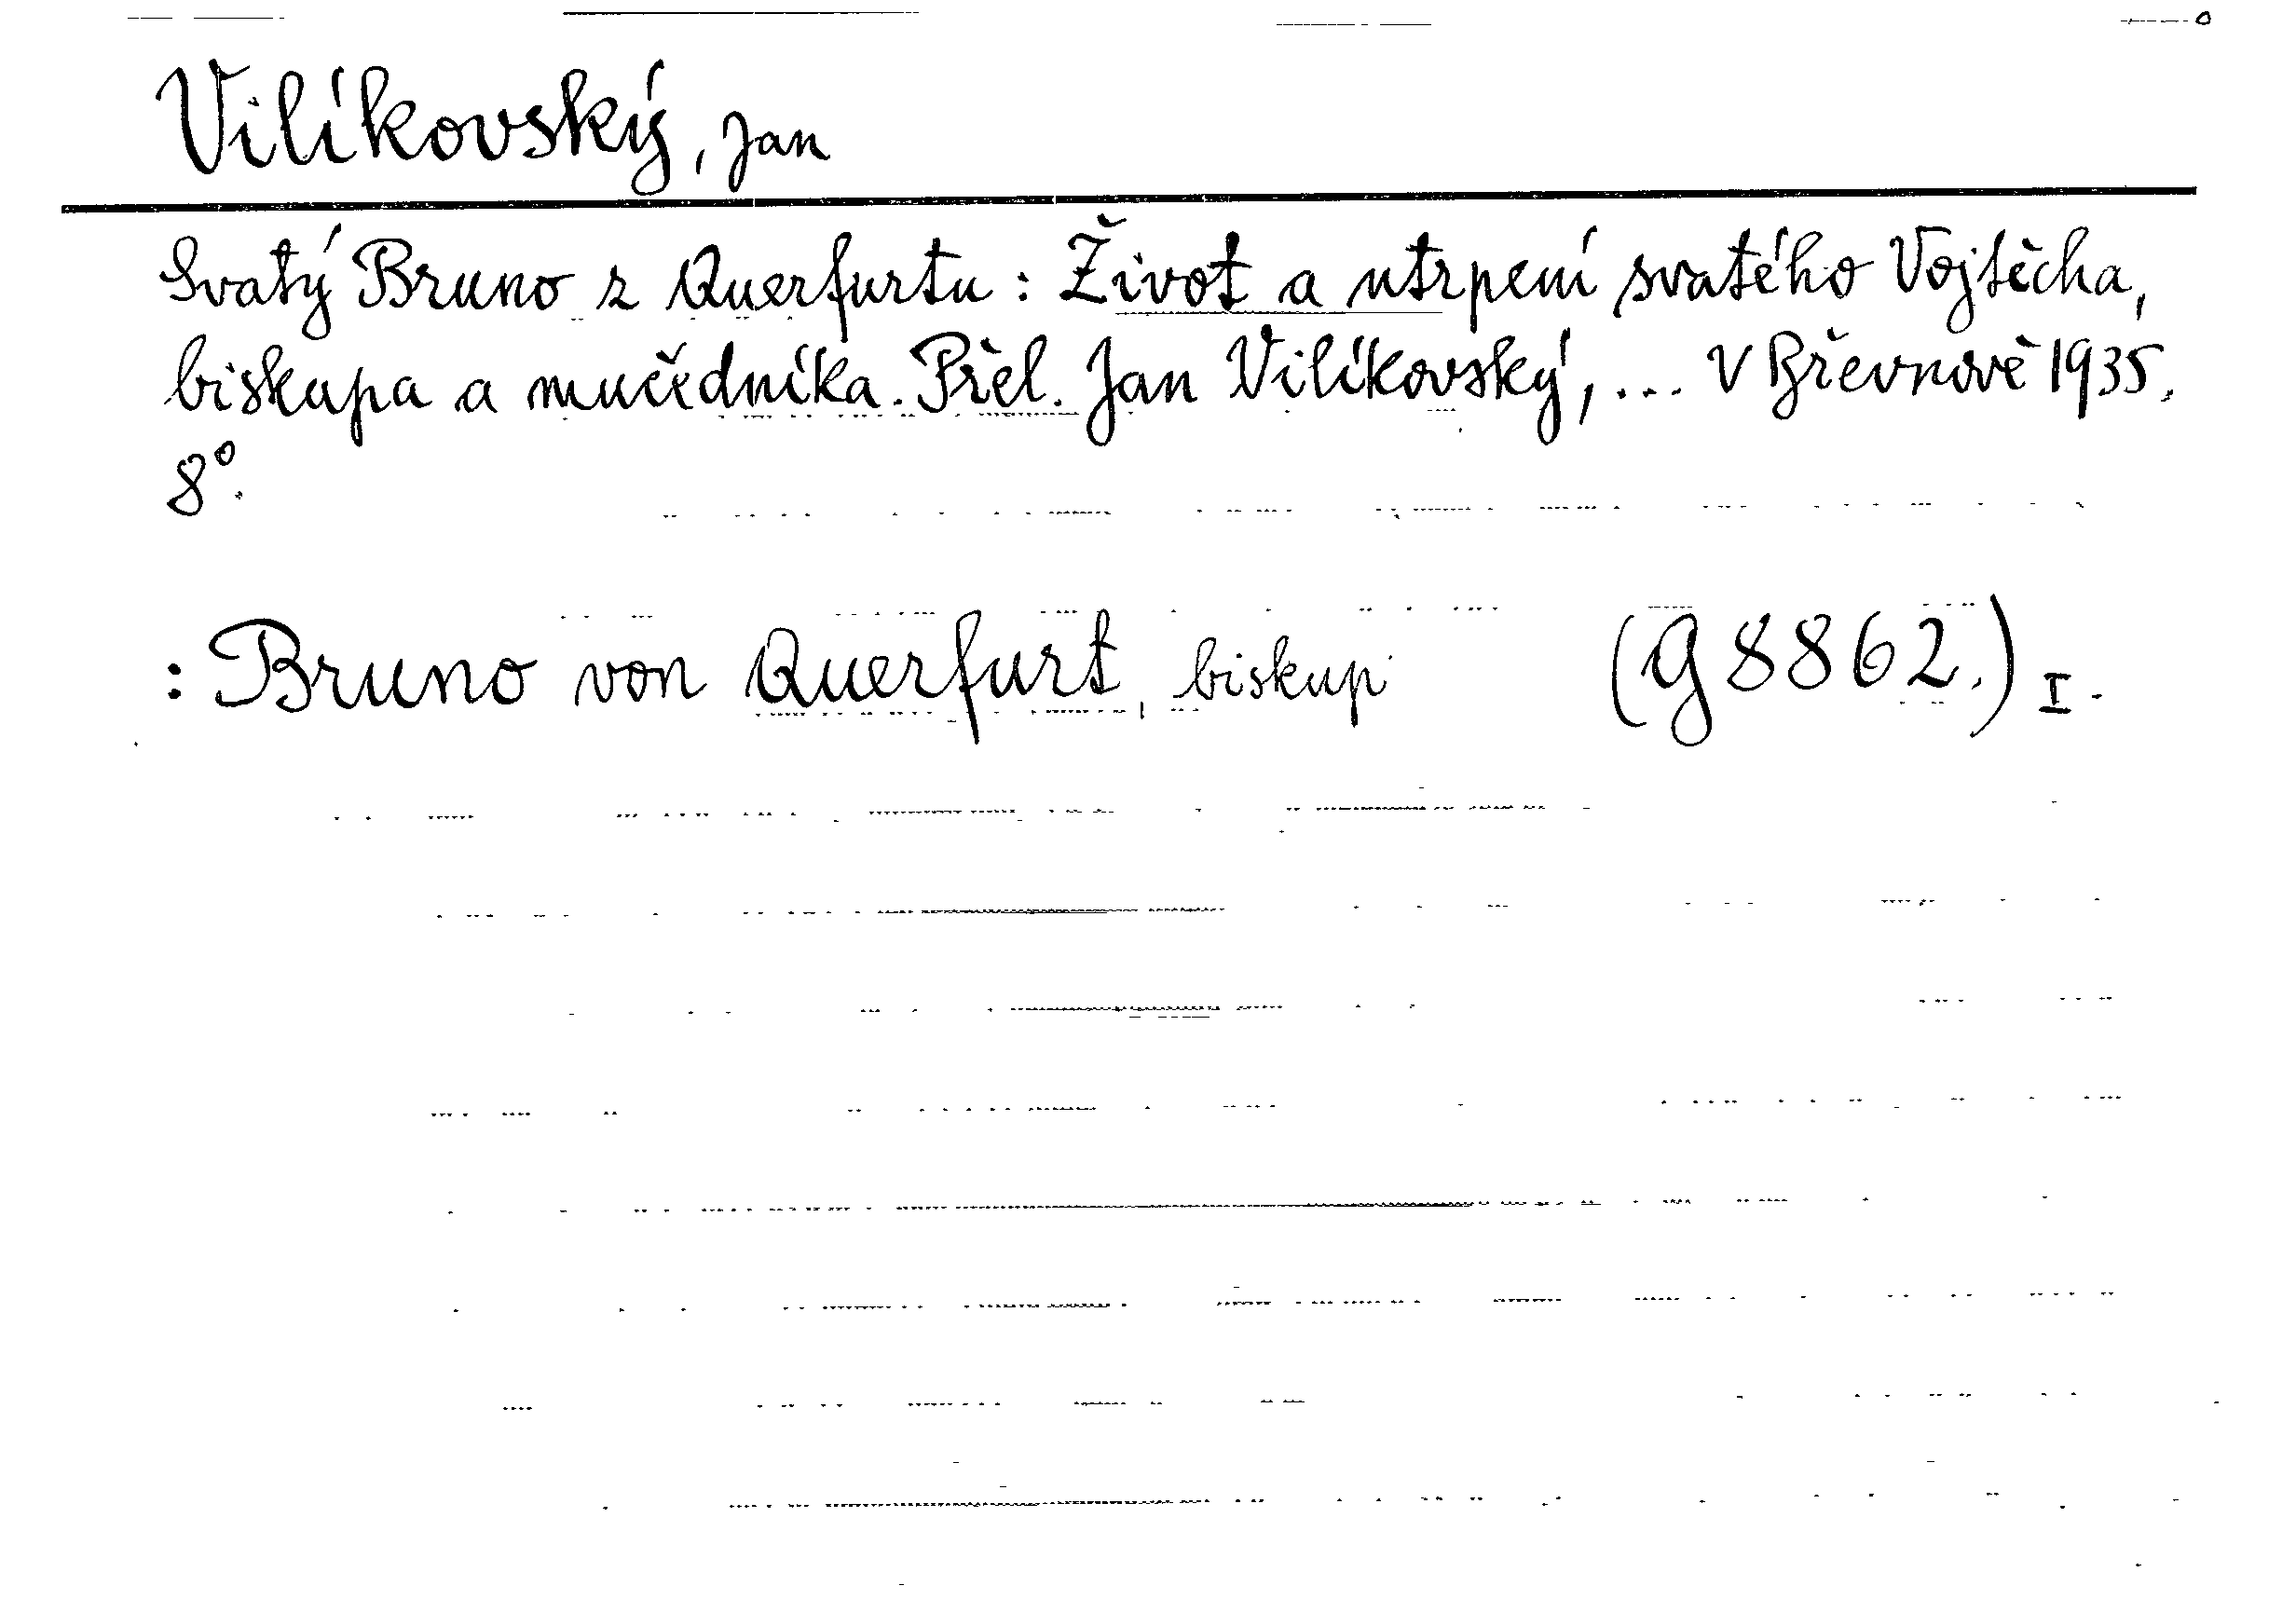 Vilíkovský, Jan
Svatý Bruno z Querfurtu: Život a utrpení svatého Vojtěcha,
biskupa a mučedníka. Přel. Jan Vilíkovský, ... V Břevnově 1935.
8°.
: Bruno von Querfurt, biskup (g 8862.) I.